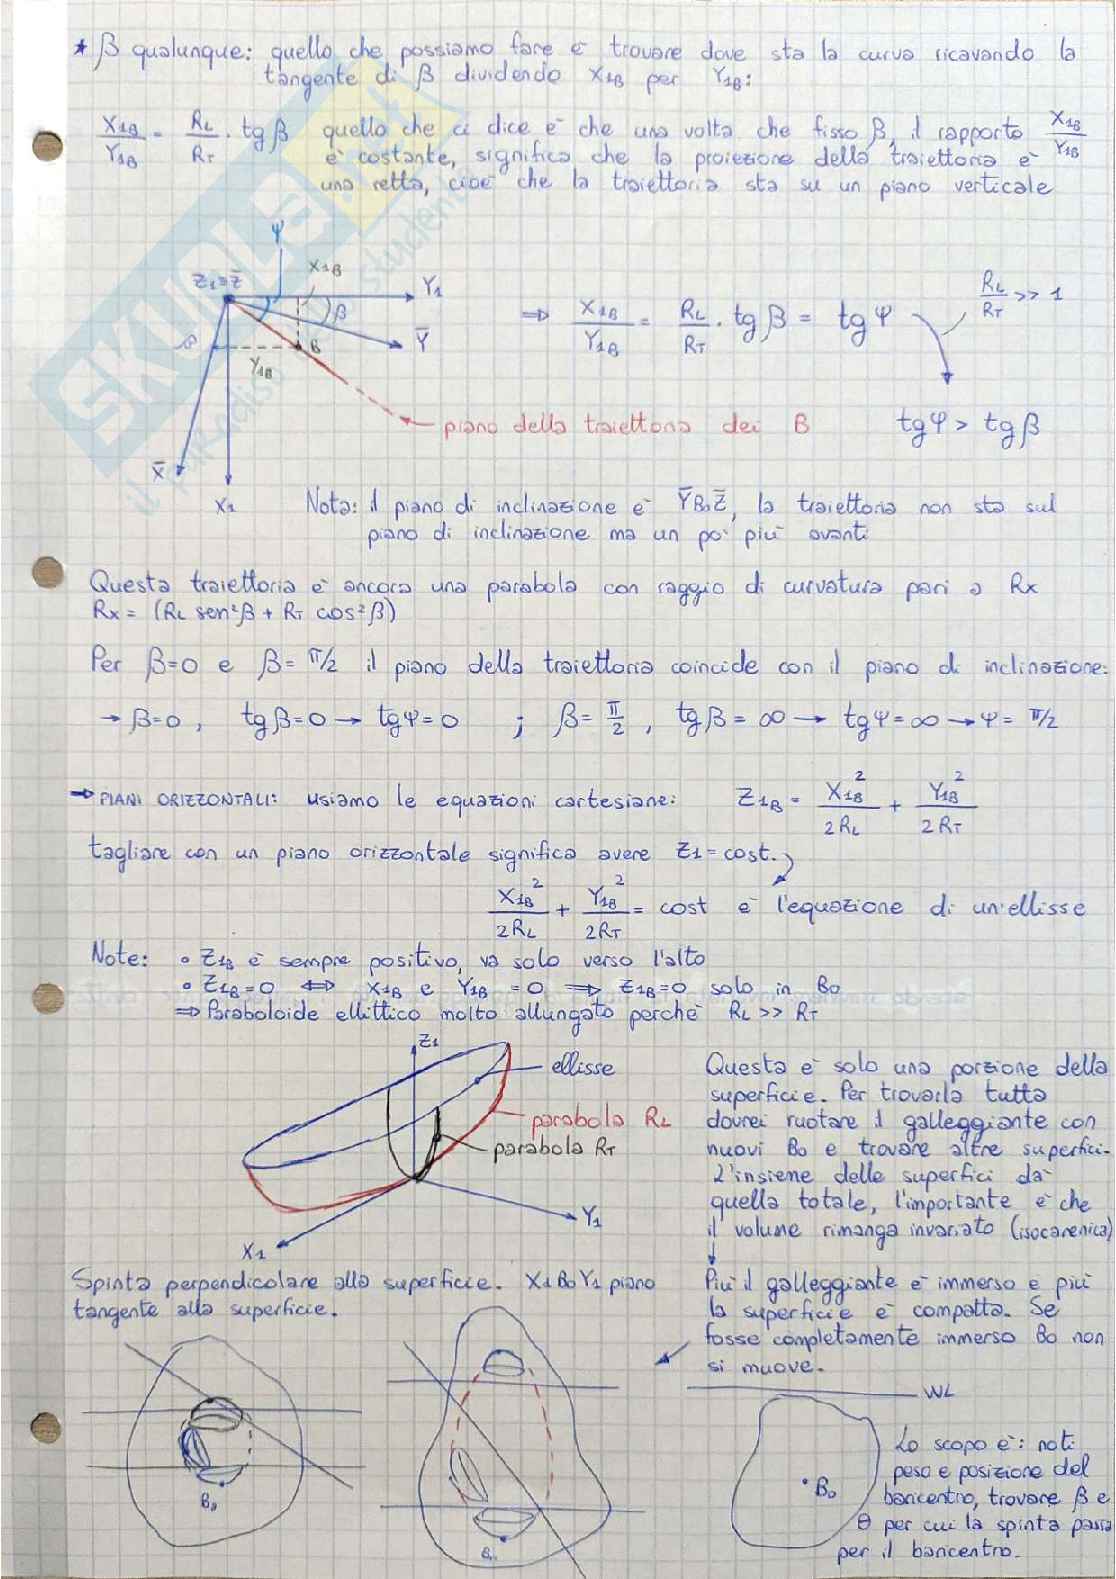 * β qualunque: quello che possiamo fare è trovare dove sta la curva ricavando la
tangente di β dividendo X1B per Y1B:
X1B/Y1B = RL/RT · tgβ quello che ci dice è che una volta che fisso β, il rapporto X1B/Y1B
è costante, significa che la proiezione della traiettoria è
una retta, cioè che la traiettoria sta su un piano verticale
Ψ
Z1≡Z̄
X1B
Y1
β
Ȳ
B
Y1B
X̄
X1
⇒ X1B/Y1B = RL/RT · tgβ = tgΨ
RL/RT >> 1
tgΨ > tgβ
piano della traiettoria dei B
Nota: il piano di inclinazione è ȲB0Z̄, la traiettoria non sta sul
piano di inclinazione ma un po' più avanti
Questa traiettoria è ancora una parabola con raggio di curvatura pari a Rx
Rx = (RL sen²β + RT cos²β)
Per β=0 e β=π/2 il piano della traiettoria coincide con il piano di inclinazione:
→ β=0, tgβ=0 → tgΨ=0 ; β=π/2, tgβ=∞ → tgΨ=∞ → Ψ=π/2
⇒ PIANI ORIZZONTALI: usiamo le equazioni cartesiane: Z1B = X1B²/2RL + Y1B²/2RT
tagliare con un piano orizzontale significa avere Z1=cost.
X1B²/2RL + Y1B²/2RT = cost è l'equazione di un'ellisse
Note: ∘ Z1B è sempre positivo, va solo verso l'alto
∘ Z1B=0 ⇔ X1B e Y1B =0 ⇒ Z1B=0 solo in B0
⇒ Paraboloide ellittico molto allungato perchè RL >> RT
Z1
ellisse
parabola RL
parabola RT
Y1
X1
Questa è solo una porzione della
superficie. Per trovarla tutta
dovrei ruotare il galleggiante con
nuovi B0 e trovare altre superfici.
L'insieme delle superfici dà
quella totale, l'importante è che
il volume rimanga invariato (isocarenica)
↓
Più il galleggiante è immerso e più
la superficie è compatta. Se
fosse completamente immerso B0 non
si muove.
Spinta perpendicolare alla superficie. X1B0Y1 piano
tangente alla superficie.
B0
B0
WL
B0
Lo scopo è: noti
peso e posizione del
baricentro, trovare β e
θ per cui la spinta passa
per il baricentro.
SKUOLA.net
il paradiso
studen